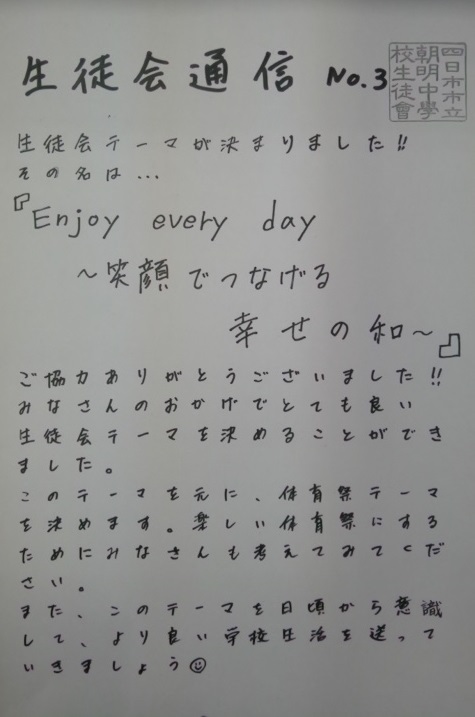 生徒会通信 No.3
四日市市立
朝明中學
校生徒會
生徒会テーマが決まりました!!
その名は...
『Enjoy every day
～笑顔でつなげる
幸せの和～』
ご協力ありがとうございました!!
みなさんのおかげでとても良い
生徒会テーマを決めることができ
ました。
このテーマを元に、体育祭テーマ
を決めます。楽しい体育祭にする
ためにみなさんも考えてみてくだ
さい。
また、このテーマを日頃から意識
して、より良い学校生活を送って
いきましょう☺